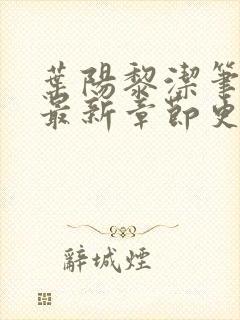 葉陽黎潔筆
最新章節史
辭城煙